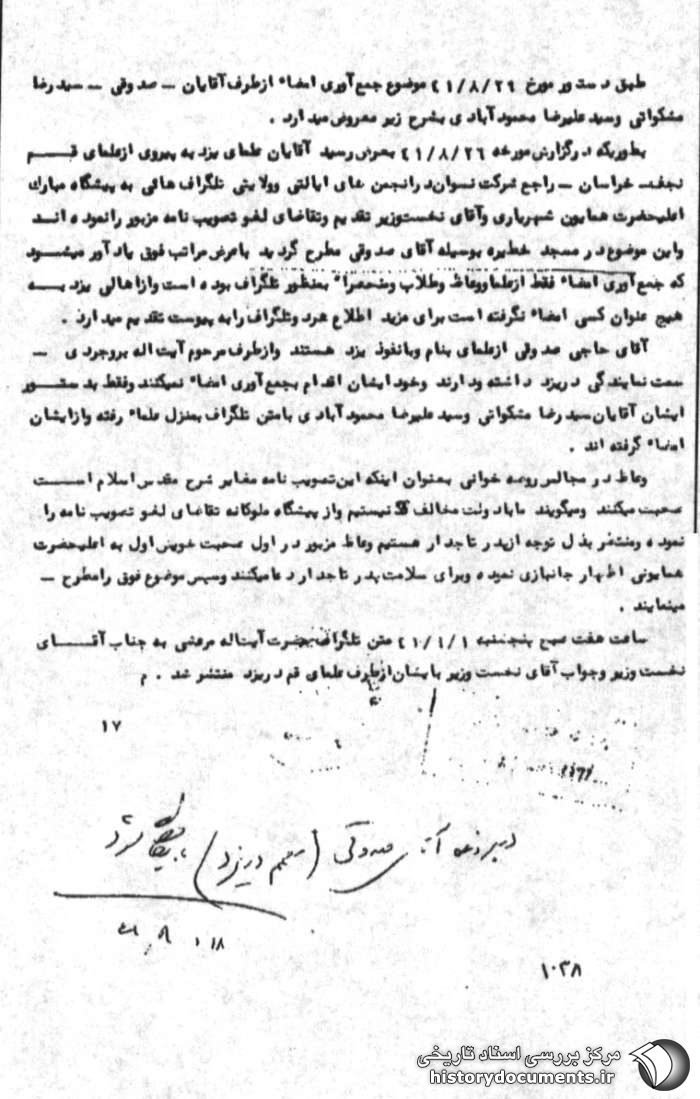 طبق دستور مورخ ۴۱/۸/۲۹ موضوع جمع‌آوری امضاء ازطرف آقایان ــ صدوقی ــ سید رضا
مشکواتی وسید علیرضا محمودآبادی بشرح زیر معروض میدارد .
بطوریکه درگزارش مورخه ۴۱/۸/۲۶ بعرض رسید آقایان علمای یزد به پیروی ازعلمای قــم
نجف ــ خراسان ــ راجع شرکت نسوان در انجمن های ایالتی وولایتی تلگراف هائی به پیشگاه مبارک
اعلیحضرت همایون شهریاری وآقای نخست‌وزیر تقدیم وتقاضای لغو تصویب نامه مزبور رانموده انـد
واین موضوع در مسجد خطیره بوسیله آقای صدوقی مطرح گردید باعرض مراتب فوق یاد آور میشـود
که جمع‌آوری امضاء فقط ازعلما ووعاظ وطلاب ومنحصراً بمنظور تلگراف بوده است وازاهالی یزد بـه
هیچ عنوان کسی امضاء نگرفته است برای مزید اطلاع هرد وتلگراف رابه پیوست تقدیم میدارد .
آقای حاجی صدوقی ازعلمای بنام وبانفوذ یزد هستند وازطرف مرحوم آیت اله بروجردی ــ
سمت نمایندگی دریزد داشته ودارند وخود ایشان اقدام بجمع آوری امضاء نمیکنند وفقط بدستـور
ایشان آقایان سید رضا مشکواتی وسید علیرضا محمودآبادی بامتن تلگراف بمنزل علماء رفته وازایشان
امضاء گرفته اند .
وعاظ در مجالس روضه خوانی بعنوان اینکه این تصویب نامه مغایر شرح مقدس اسلام اسـت
صحبت میکنند ومیگویند مابا دولت مخالف نیستیم واز پیشگاه ملوکانه تقاضای لغو تصویب نامه را
نموده ومنتظر بذل توجه ازپدر تاجدار هستیم وعاظ مزبور در اول صحبت خویش اول به اعلیحضرت
همایونی اظهار جانبازی نموده وبرای سلامت پدر تاجدار دعامیکنند وسپس موضوع فوق رامطرح ــ
مینمایند .
ساعت هفت صبح پنجشنبه ۴۱/۹/۱ متن تلگراف حضرت آیت‌اله مرعشی به جناب آقــای
نخست وزیر وجواب آقای نخست وزیر بایشان ازطرف علمای قم دریزد منتشر شد . م
۱۷
در پرونده آقای صدوقی (مقیم در یزد) بایگانی شود
۱۰۳۸
مرکز بررسی اسناد تاریخی
historydocuments.ir